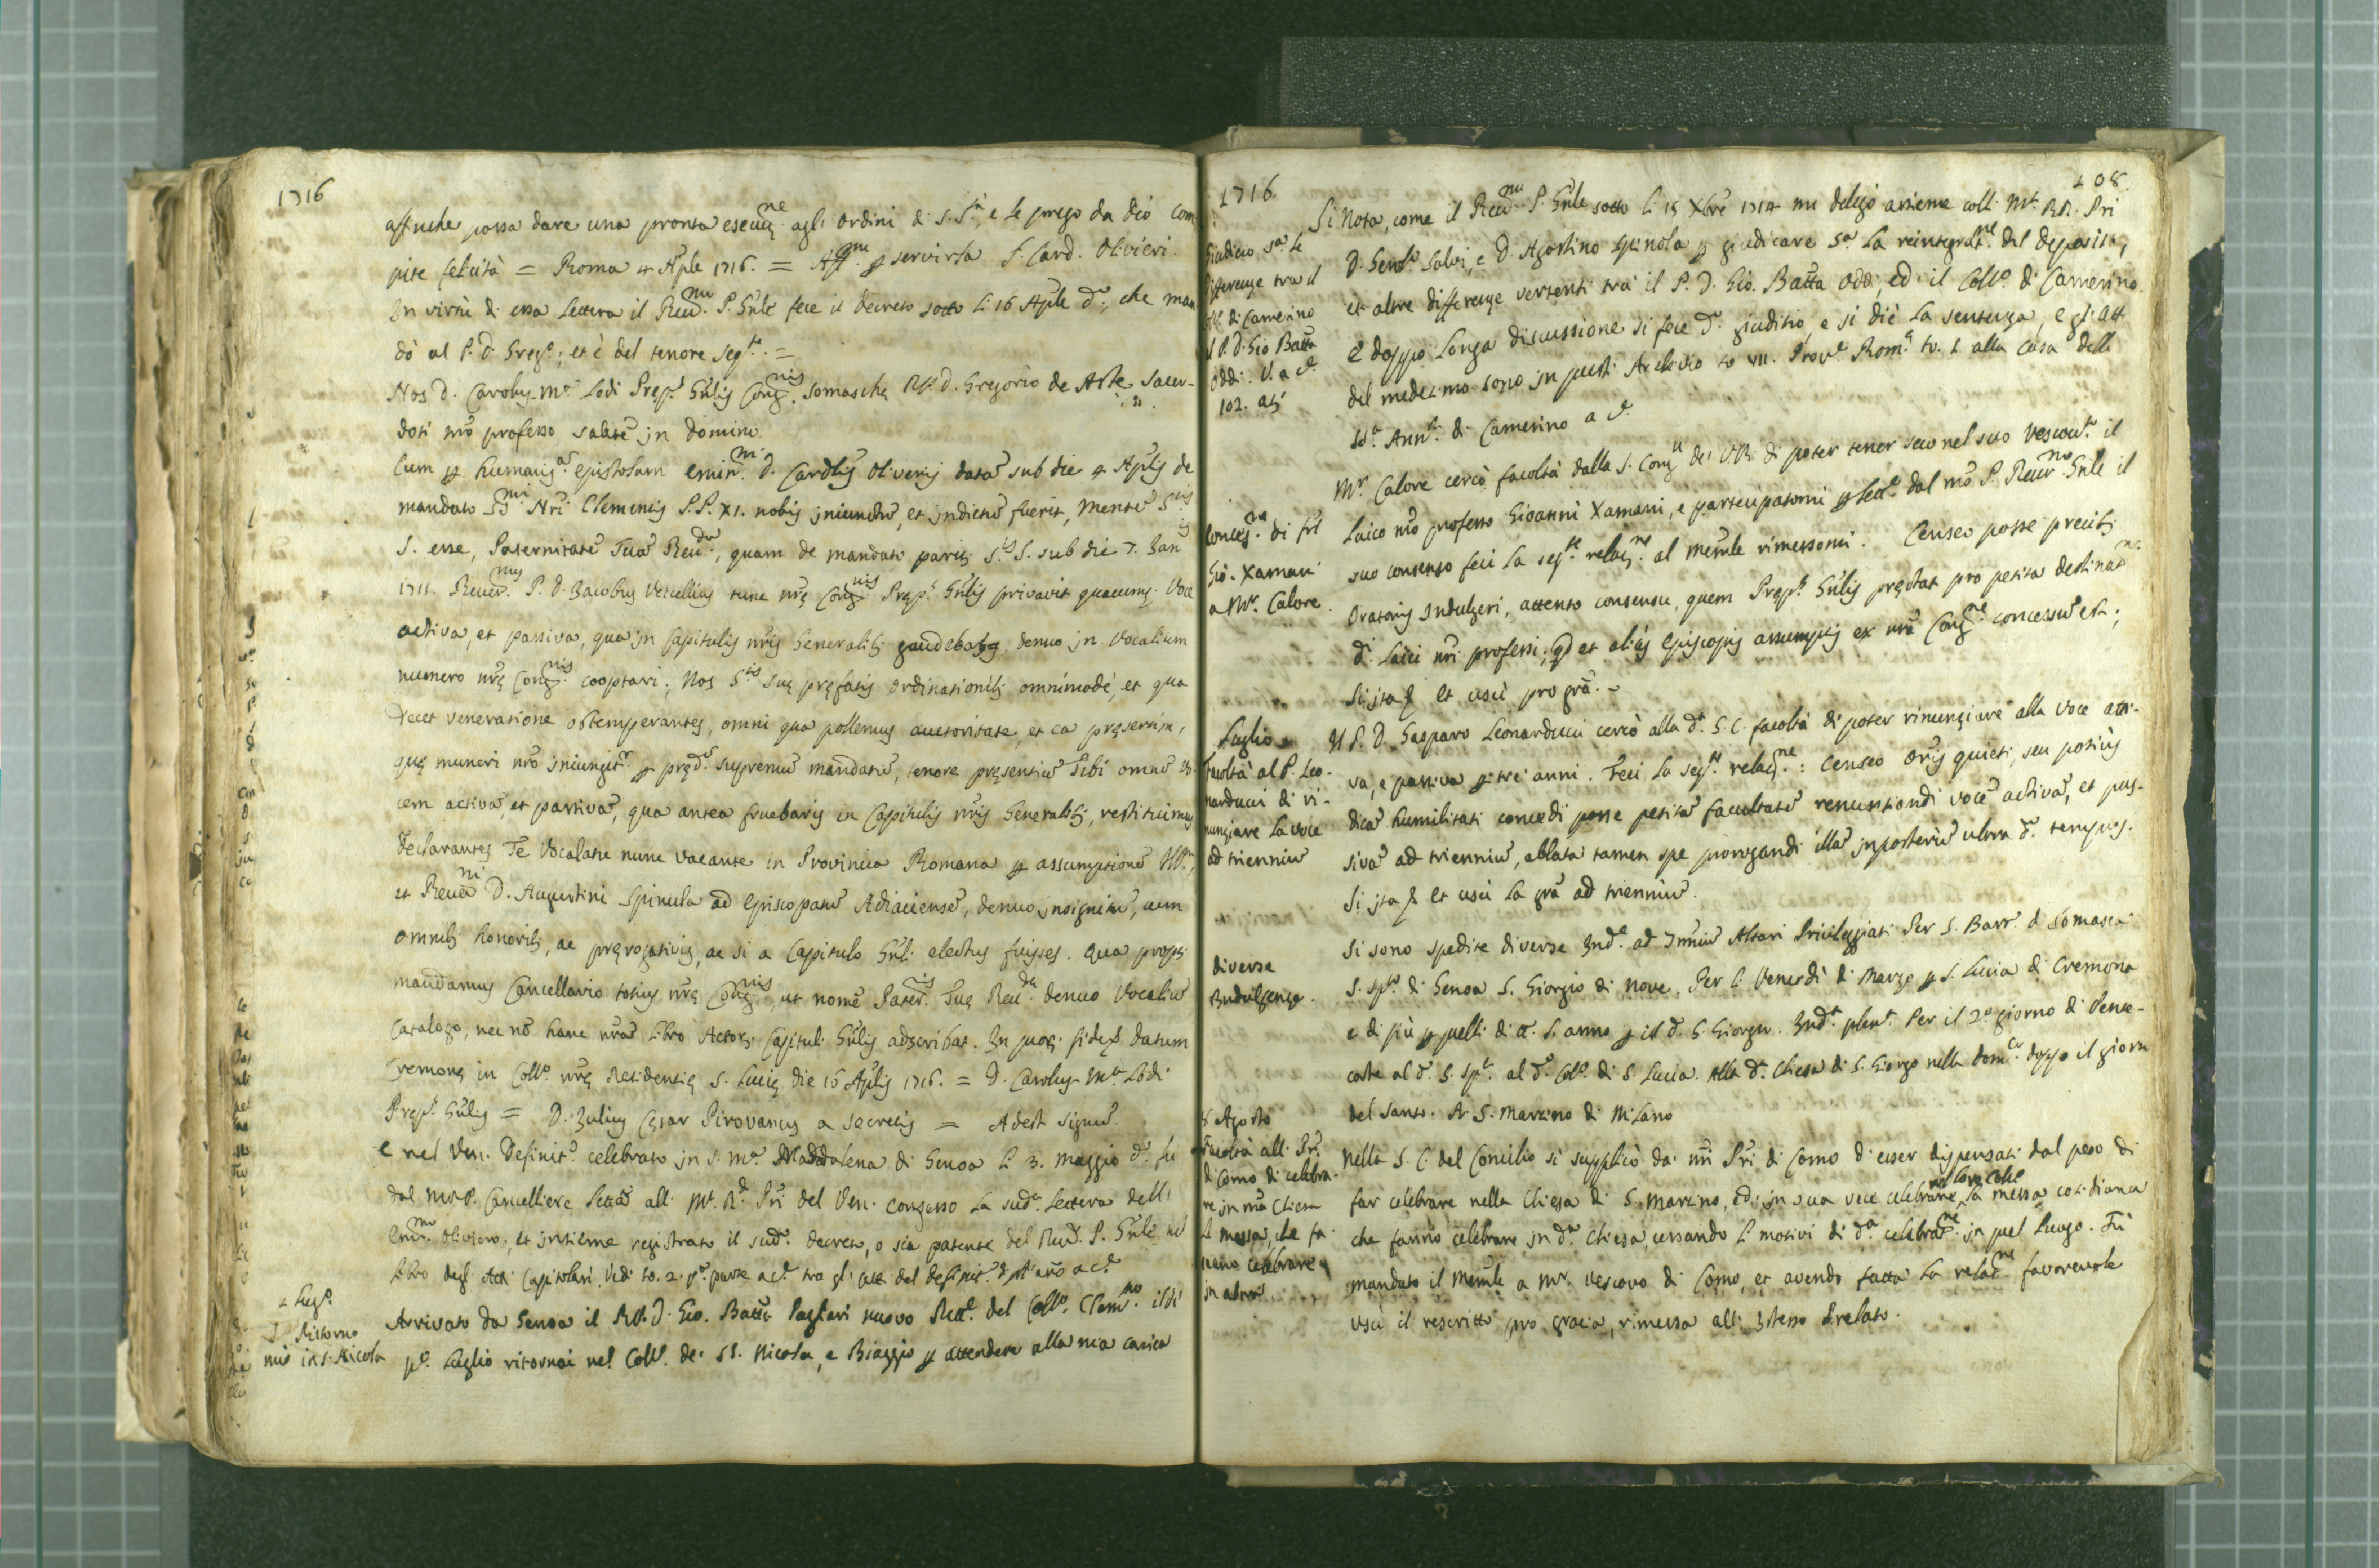 1716
affinche possa dare una pronta esecuz.ne agli ordini di S. S.tà, e le prego da Dio com
pite felicità = Roma 4 Ap̃le 1716. = Aff.mo p servirla F. Card. Olivieri.
In virtù di essa lettera il Reu.mo P. Gn̄le fece il decreto sotto li 16 Ap̃le d.o, che man
dò al P. D. Greg.o; et è del tenore seg.te =
Nos D. Carolus M.a Lodi Prep.s Gn̄lis Cong.nis Somaschę R.P.D. Gregorio de Aste sacer-
doti nr̄o professo salutē in Domino
Cum p humaniss.as epistolam Emin.mi D. Cardlis Oliverij datā sub die 4 Ap̃lis de
mandato SS.mi Nr̄i Clementis P.P. XI. nobis iniunctū, et indictū fuerit, mentē S.tis
S. esse, Paternitatē Tuā Reu.dā, quam de mandato pariter S.tis S. sub die 7. Ian.is
1711. Reuer.mus P. D. Iacobus Vercellius tunc nr̄ę Cong.nis Prep.s Gn̄lis privavit quacumq. voce
activa, et passiva, qua in Capitulis nr̄is Generalib; gaudebas, denuo in vocalium
numero nr̄ę Cong.nis cooptari; Nos S.tis Suę pręfatis ordinationib; omnimodè, et qua
decet veneratione obtemperantes, omni qua pollemus auctoritate, et ea pręsertim,
quę muneri nr̄o iniungit.r p pręd.ū supremū mandatū, tenore pręsentiū Tibi omnē vo-
cem activā, et passivā, qua antea fruebaris in Capitulis nr̄is Generalib;, restituimus
Declarantes Te Vocalatu nunc vacante in Provincia Romana p assumptionē Ill.mi,
et Reu.mi D. Augustini Spinula ad Episcopatū Adiacensē, denuo insignitū, cum
omnib; honorib;, ac pręrogativis, ac si a Capitulo Gn̄li electus fuisses. Qua propt.
mandamus Cancellario totius nr̄ę Cong.nis, ut nomē Pater.tis Tuę Reu.dę denuo Vocaliū
Catalogo, nec nō hanc nr̄ā libro Actor. Capituli Gn̄lis adscribat. In quor. fidē Datum
Cremonę in Coll.o nr̄ę Residentię S. Lucię die 16 Ap̃lis 1716. = D. Carolus M.a Lodi
Prep.s Gn̄lis = D. Iulius Cęsar Pirovanus a secretis = Adest signū.
E nel Ven. Definit.o celebrato in S. M.a Maddalena di Genoa li 3. Maggio d.o fu
dal M.R.P. Cancelliere letta alli M.ti R.di Pr̄i del Ven. congresso la sud.a lettera dell'
Em.mo Oliviero, et insieme registrato il sud.o decreto, o sia patente del Reu.mo P. Gn̄le nel
libro degli Atti Capitolari. Vedi to. 2. p.a parte a c. tra gli atti del definit.o di q.to año a c.
1 Lug.o
Ritorno
mio in S. Nicola
Arrivato da Genoa il R.P.D. Gio. Batta Pagliari nuovo Rett.e del Coll.o Clem.no il dì
p.o Luglio ritornai nel Coll.o de' SS. Nicola, e Biaggio p attendere alla mia carica
1716.
108.
Giudicio s.a le
differenze tra il
Coll.o di Camerino
e il P. D. Gio Batta
Oddi. V. a c.
102. at.
Si nota, come il Reu.mo P. Gn̄le sotto li 15 Xbre 1714 mi delegò assieme colli M.ti RR. Pr̄i
D. Girol.o Salvi, e D. Agostino Spinola p giudicare s.a la reintegrat.ne del deposito,
et altre differenze vertenti trà il P. D. Gio. Batta Oddi, ed il Coll.o di Camerino.
E doppo longa discussione si fece d.o giuditio, e si diè la sentenza, e gli atti
del medesimo sono in questo Archivio to VII. Prov.e Rom.a to. 1 alla Casa della
SS.a Ann.ta di Camerino a c.
Conces.ne di frl
Gio. Xamani
a M.r Calore.
M.r Calore cercò facoltà dalla S. Cong.e de' VR. di poter tener seco nel suo Vescov.to il
laico nr̄o professo Gioanni Xamani, e participatomi p lett.a dal nr̄o P. Reuer.mo Gn̄le il
suo consenso feci la seg.te relaz.ne al memle rimessomi. Censeo posse precib;
Oratoris indulgeri, attento consensu, quem Prep.s Gn̄lis pręstat pro petita destinat.ne
d.i laici nr̄i professi, qd et aliàs Episcopis assumptis ex nr̄a Cong.ne concessū est;
Si ita &c et uscì pro grā.
Luglio
Facoltà al P. Leo-
narducci di ri-
nunziare la voce
ad trienniū
Il P. D. Gasparo Leonarducci cercò alla d.a S. C. facoltà di poter rinunziare alla voce atti-
va, e passiva p tre anni. Feci la seg.te relaz.ne: Censeo Oris quieti, seu potiùs
dicā humilitati concedi posse petitā facultatē renuntiandi vocē activā, et pas-
sivā ad trienniū, ablata tamen spe prorogandi illā inposterū ultra d.ū tempus.
Si ita &c et uscì la grā ad trienniū.
Diverse
Indulgenze.
Si sono spedite diverse Ind.e ad Altari Privileggiati Per S. Bart.o di Somasca
S. Sp.to di Genoa S. Giorgio di Nove. Per li Venerdì di Marzo p S. Lucia di Cremona
e di più p quelli di q.to anno p il d.o S. Giorgio. Ind.a plen.a Per il 2.o giorno di Pente-
coste al d.o S. Sp.to al d.o Coll.o di S. Lucia. Alla d.a Chiesa di S. Giorgio nella dom.ca doppo il giorno
del Santo. A S. Martino di Milano
8 Agosto
Facoltà alli Pr̄i
di Como di celebra-
re in nr̄a Chiesa
la messa, che fa-
ceano celebrare
in altra
Nella S. C. del Concilio si supplicò da' nr̄i Pr̄i di Como d'esser dispensati dal peso di
far celebrare nella Chiesa di S. Martino, ed in sua vece celebrare nel loro Coll.o la messa cotidiana
che fanno celebrare in d.a Chiesa, cessando li motivi di d.a celebrat.ne in quel luogo. Fù
mandato il memle a M.r Vescovo di Como, et avendo fatta la relat.ne favorevole
uscì il rescritto pro gratia, rimessa all' istesso Prelato.